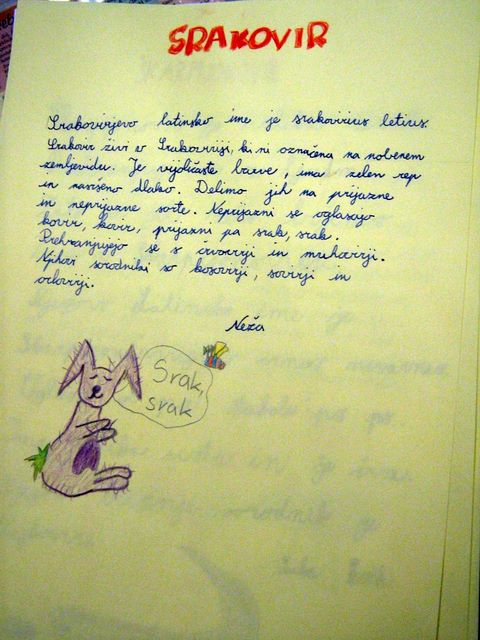 SRAKOVIR
Srakovirjevo latinsko ime je srakovirius letius.
Srakovir živi v Srakoviriji, ki ni označena na nobenem
zemljevidu. Je vijoličaste barve, ima zelen rep
in navršeno dlako. Delimo jih na prijazne
in neprijazne sorte. Neprijazni se oglašajo
kovir, kovir, prijazni pa srak, srak.
Prehranjujejo se s črvovirji in muhovirji.
Njihovi sorodniki so kosovirji, sovirji in
orlovirji.
Neža
Srak,
srak